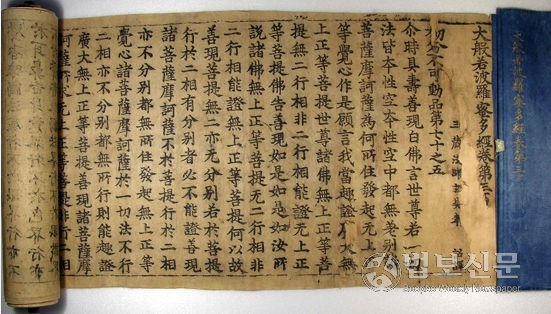 大般若波羅蜜多經卷第三
大般若波羅蜜多經卷第三
三藏法師玄奘奉 詔譯
初分不可動品第七十之五
尒時具壽善現白佛言世尊若一切
法皆本性空本性空中都無差別諸
菩薩摩訶薩為何所住發起无上正
等覺心作是願言我當趣證廣大無
上正等菩提世尊諸佛無上正等菩
提無二行相非二行相能證無上正
等菩提佛告善現如是如是如汝所
說諸佛無上正等菩提无二行相非
二行相能證無上正等菩提何以故
善現菩提無二亦无分別若於菩提
行於二相有分別者必不能證善現
諸菩薩摩訶薩不於菩提行於二相
亦不分別都無所住發起無上正等
覺心諸菩薩摩訶薩於一切法不行
二相亦不分別都無所行則能趣證
廣大無上正等菩提善現諸菩薩摩
訶薩所求无上正等菩提非行二相
법보신문